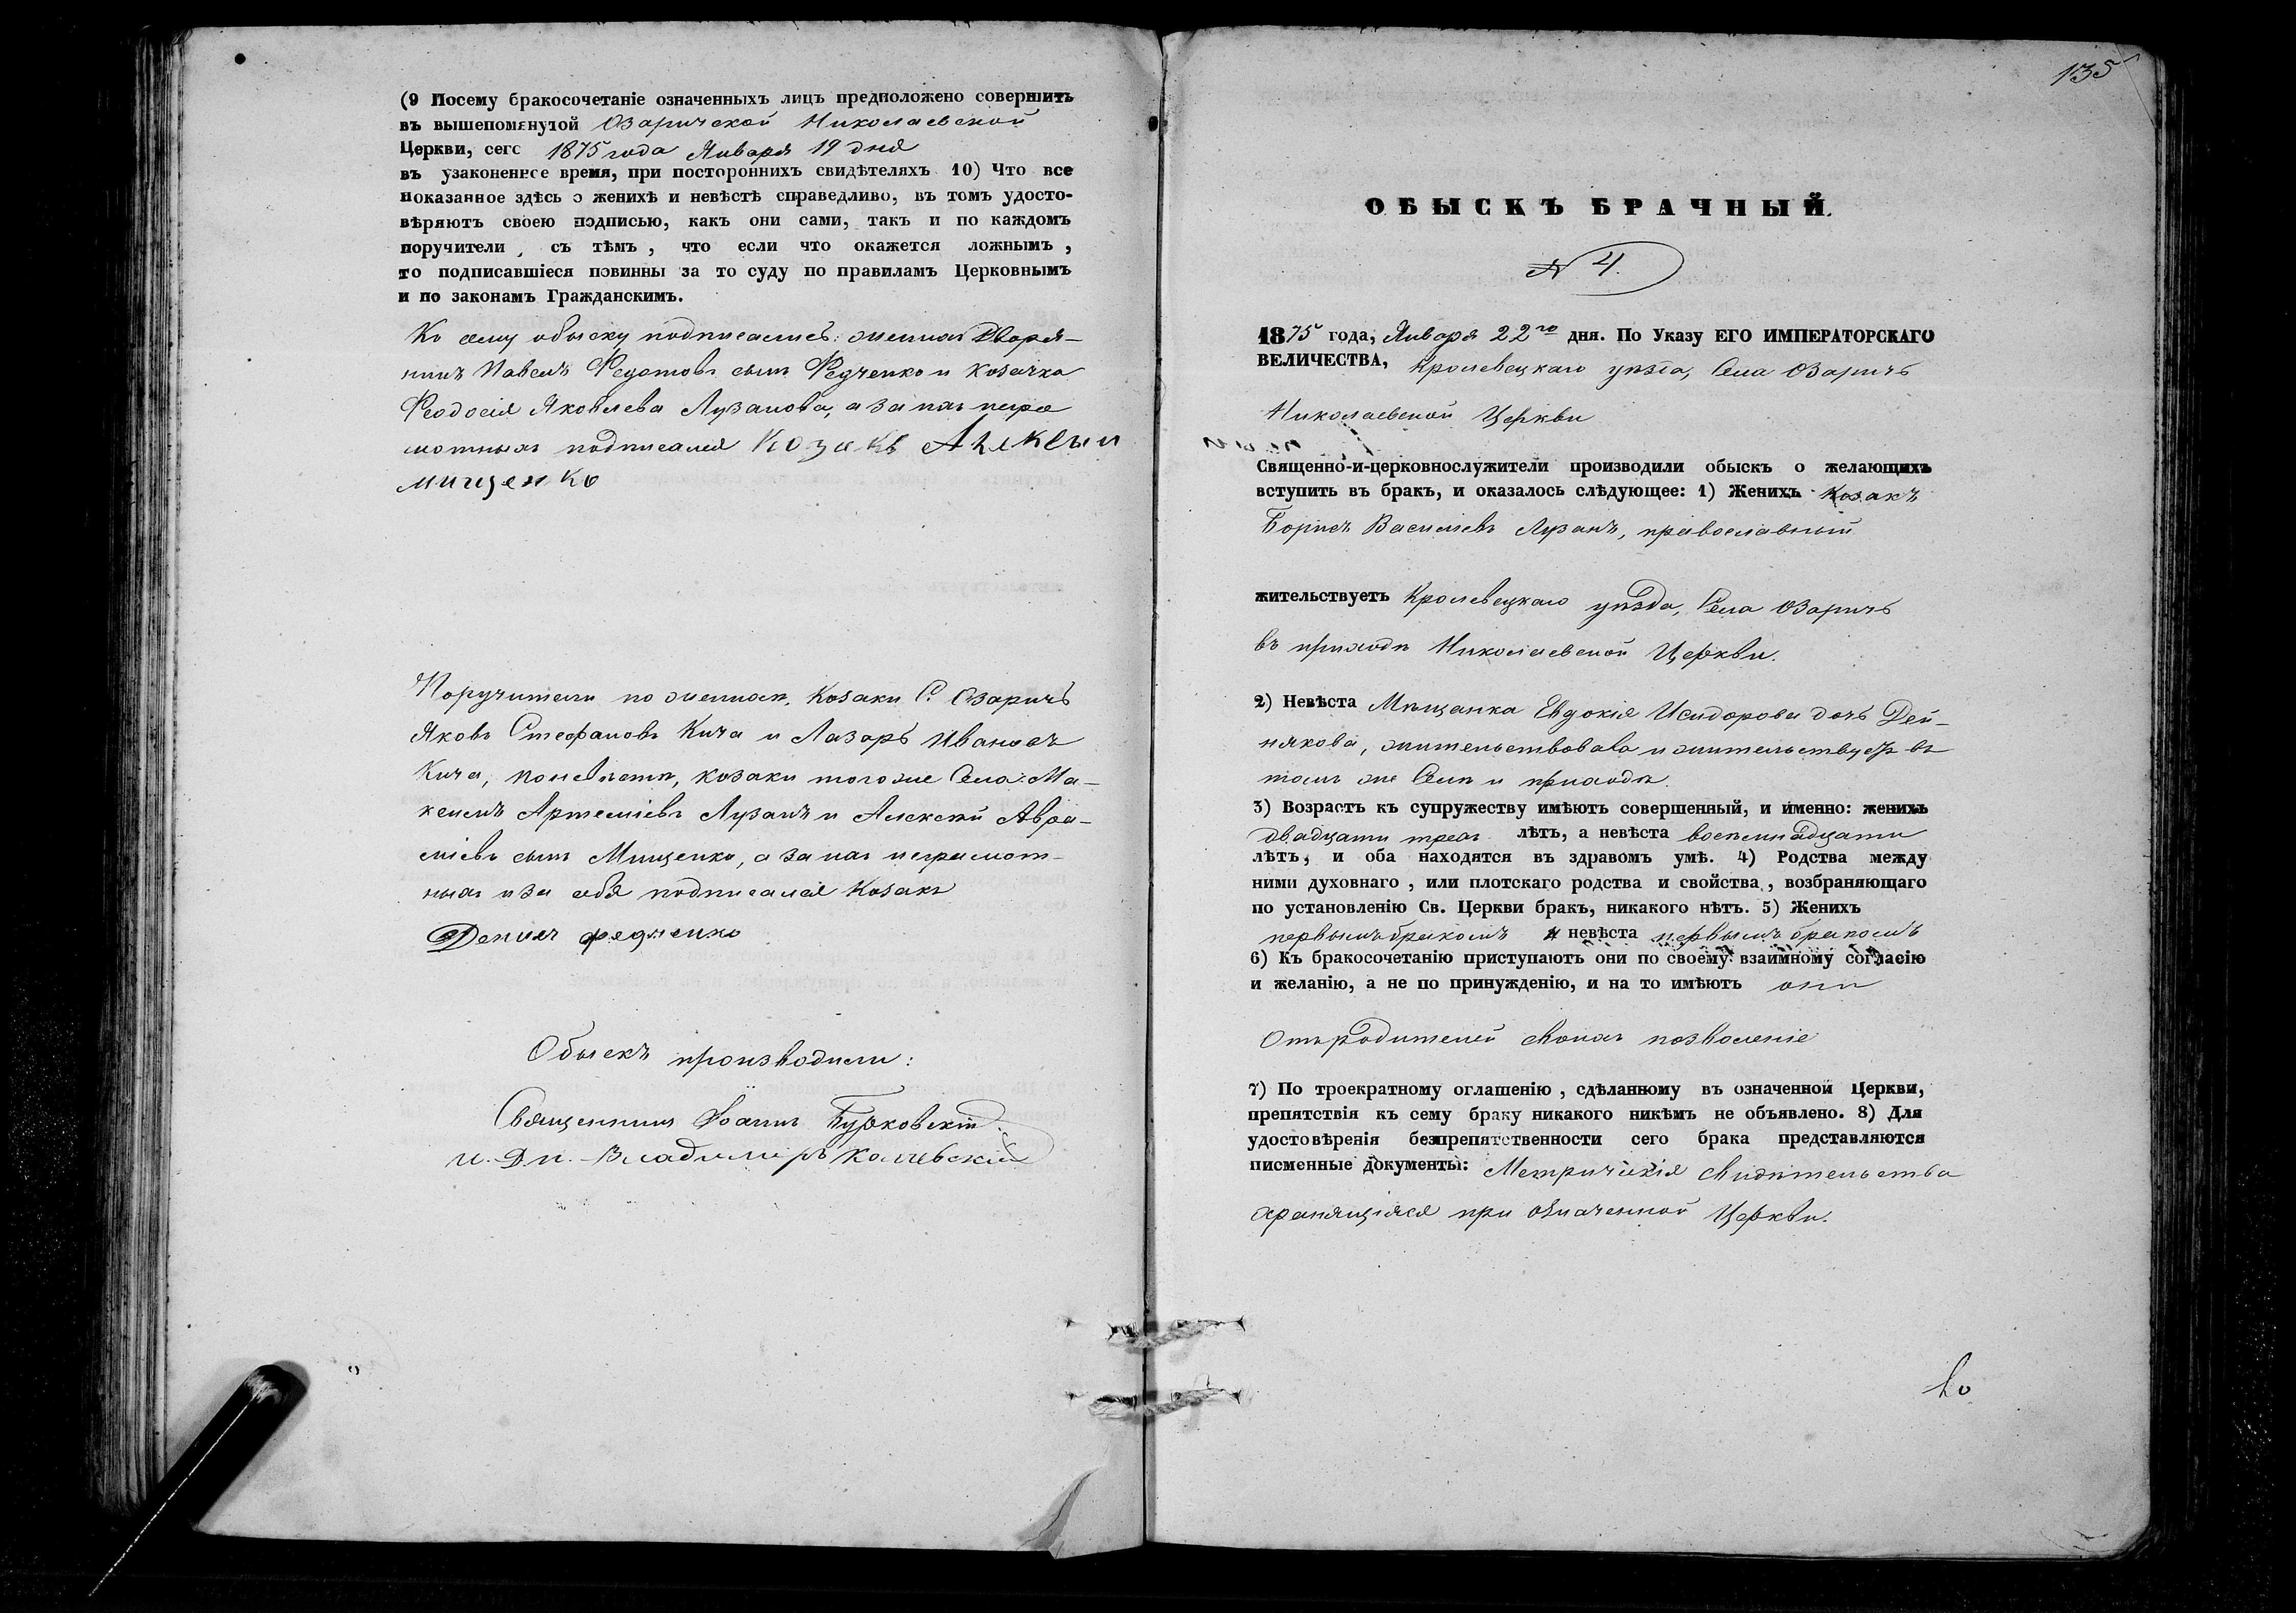 (9 Посему бракосочетаніе означенныхъ лицъ предположено совершить
въ вышепомянутой Озаричской Николаевской
Церкви, сего 1875 года Января 19 дня
въ узаконенное время, при постороннихъ свидѣтеляхъ 10) Что все
показанное здѣсь о женихѣ и невѣстѣ справедливо, въ томъ удосто-
вѣряютъ своею подписью, какъ они сами, такъ и по каждомъ
поручители, съ тѣмъ, что если что окажется ложнымъ,
то подписавшіеся повинны за то суду по правиламъ Церковнымъ
и по законамъ Гражданскимъ.
Ко сему обыску подписались: женихъ Дворя-
нинъ Павелъ Федотовъ сынъ Федченко и козачка
Феодосія Яковлева Лузанова, а за нихъ негра
мотныхъ подписался Козакъ Алексѣй
мищенко
Поручители по женихѣ, Козаки С. Озаричъ
Яковъ Стефановъ Кича и Лазарь Ивановъ
Кича, по невѣстѣ, козаки того же Села: Ма-
ксимъ Артеміевъ Лузанъ и Алексѣй Авра-
міевъ сынъ Мищенко, а за нихъ неграмот-
ныхъ и за себя подписался Козакъ
Денисъ федченко
Обыскъ производили:
Священникъ Іоаннъ Бурковскій.
и. д. п. Владимиръ
135
ОБЫСКЪ БРАЧНЫЙ.
№ 4.
1875 года, Января 22го дня. По Указу ЕГО ИМПЕРАТОРСКАГО
ВЕЛИЧЕСТВА, Кролевецкаго уѣзда, Села Озаричъ
Николаевской Церкви
Священно-и-церковнослужители производили обыскъ о желающихъ
вступить въ бракъ, и оказалось слѣдующее: 1) Женихъ Козакъ
Борисъ Васильевъ Лузанъ, православный
жительствуетъ Кролевецкаго уѣзда, Села Озаричъ
въ приходѣ Николаевской Церкви.
2) Невѣста Мѣщанка Евдокія Исидорова дочь Дей-
някова, жительствовала и жительствуетъ въ
томъ же Селѣ и приходѣ.
3) Возрастъ къ супружеству имѣютъ совершенный, и именно: женихъ
двадцати трехъ лѣтъ, а невѣста восемнадцати
лѣтъ, и оба находятся въ здравомъ умѣ. 4) Родства между
ними духовнаго, или плотскаго родства и свойства, возбраняющаго
по установленію Св. Церкви бракъ, никакого нѣтъ. 5) Женихъ
первымъ бракомъ и невѣста первымъ бракомъ
6) Къ бракосочетанію приступаютъ они по своему взаимному согласію
и желанію, а не по принужденію, и на то имѣютъ они
Отъ родителей своихъ позволеніе
7) По троекратному оглашенію, сдѣланному въ означенной Церкви,
препятствія къ сему браку никакого никѣмъ не объявлено. 8) Для
удостовѣренія безпрепятственности сего брака представляются
писменные документы: Метрическія свидѣтельства
хранящіяся при означенной Церкви.